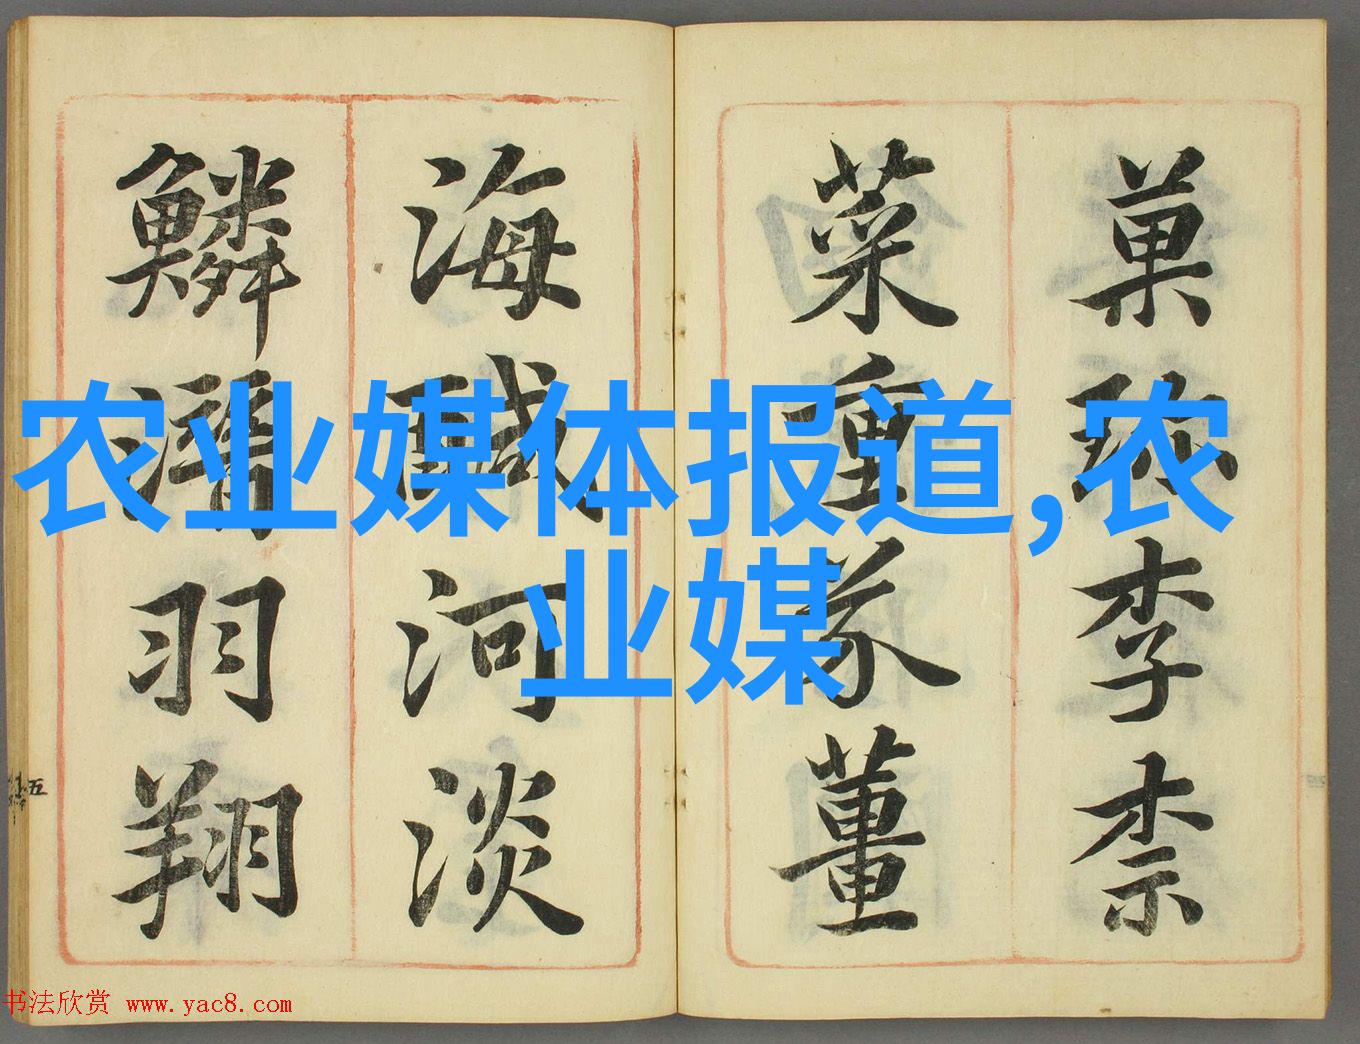 菓珎李柰
菜重芥薑
海醎河淡
鱗潛羽翔
五
农业媒体报道,农
业媒
书法欣赏 www.yac8.com